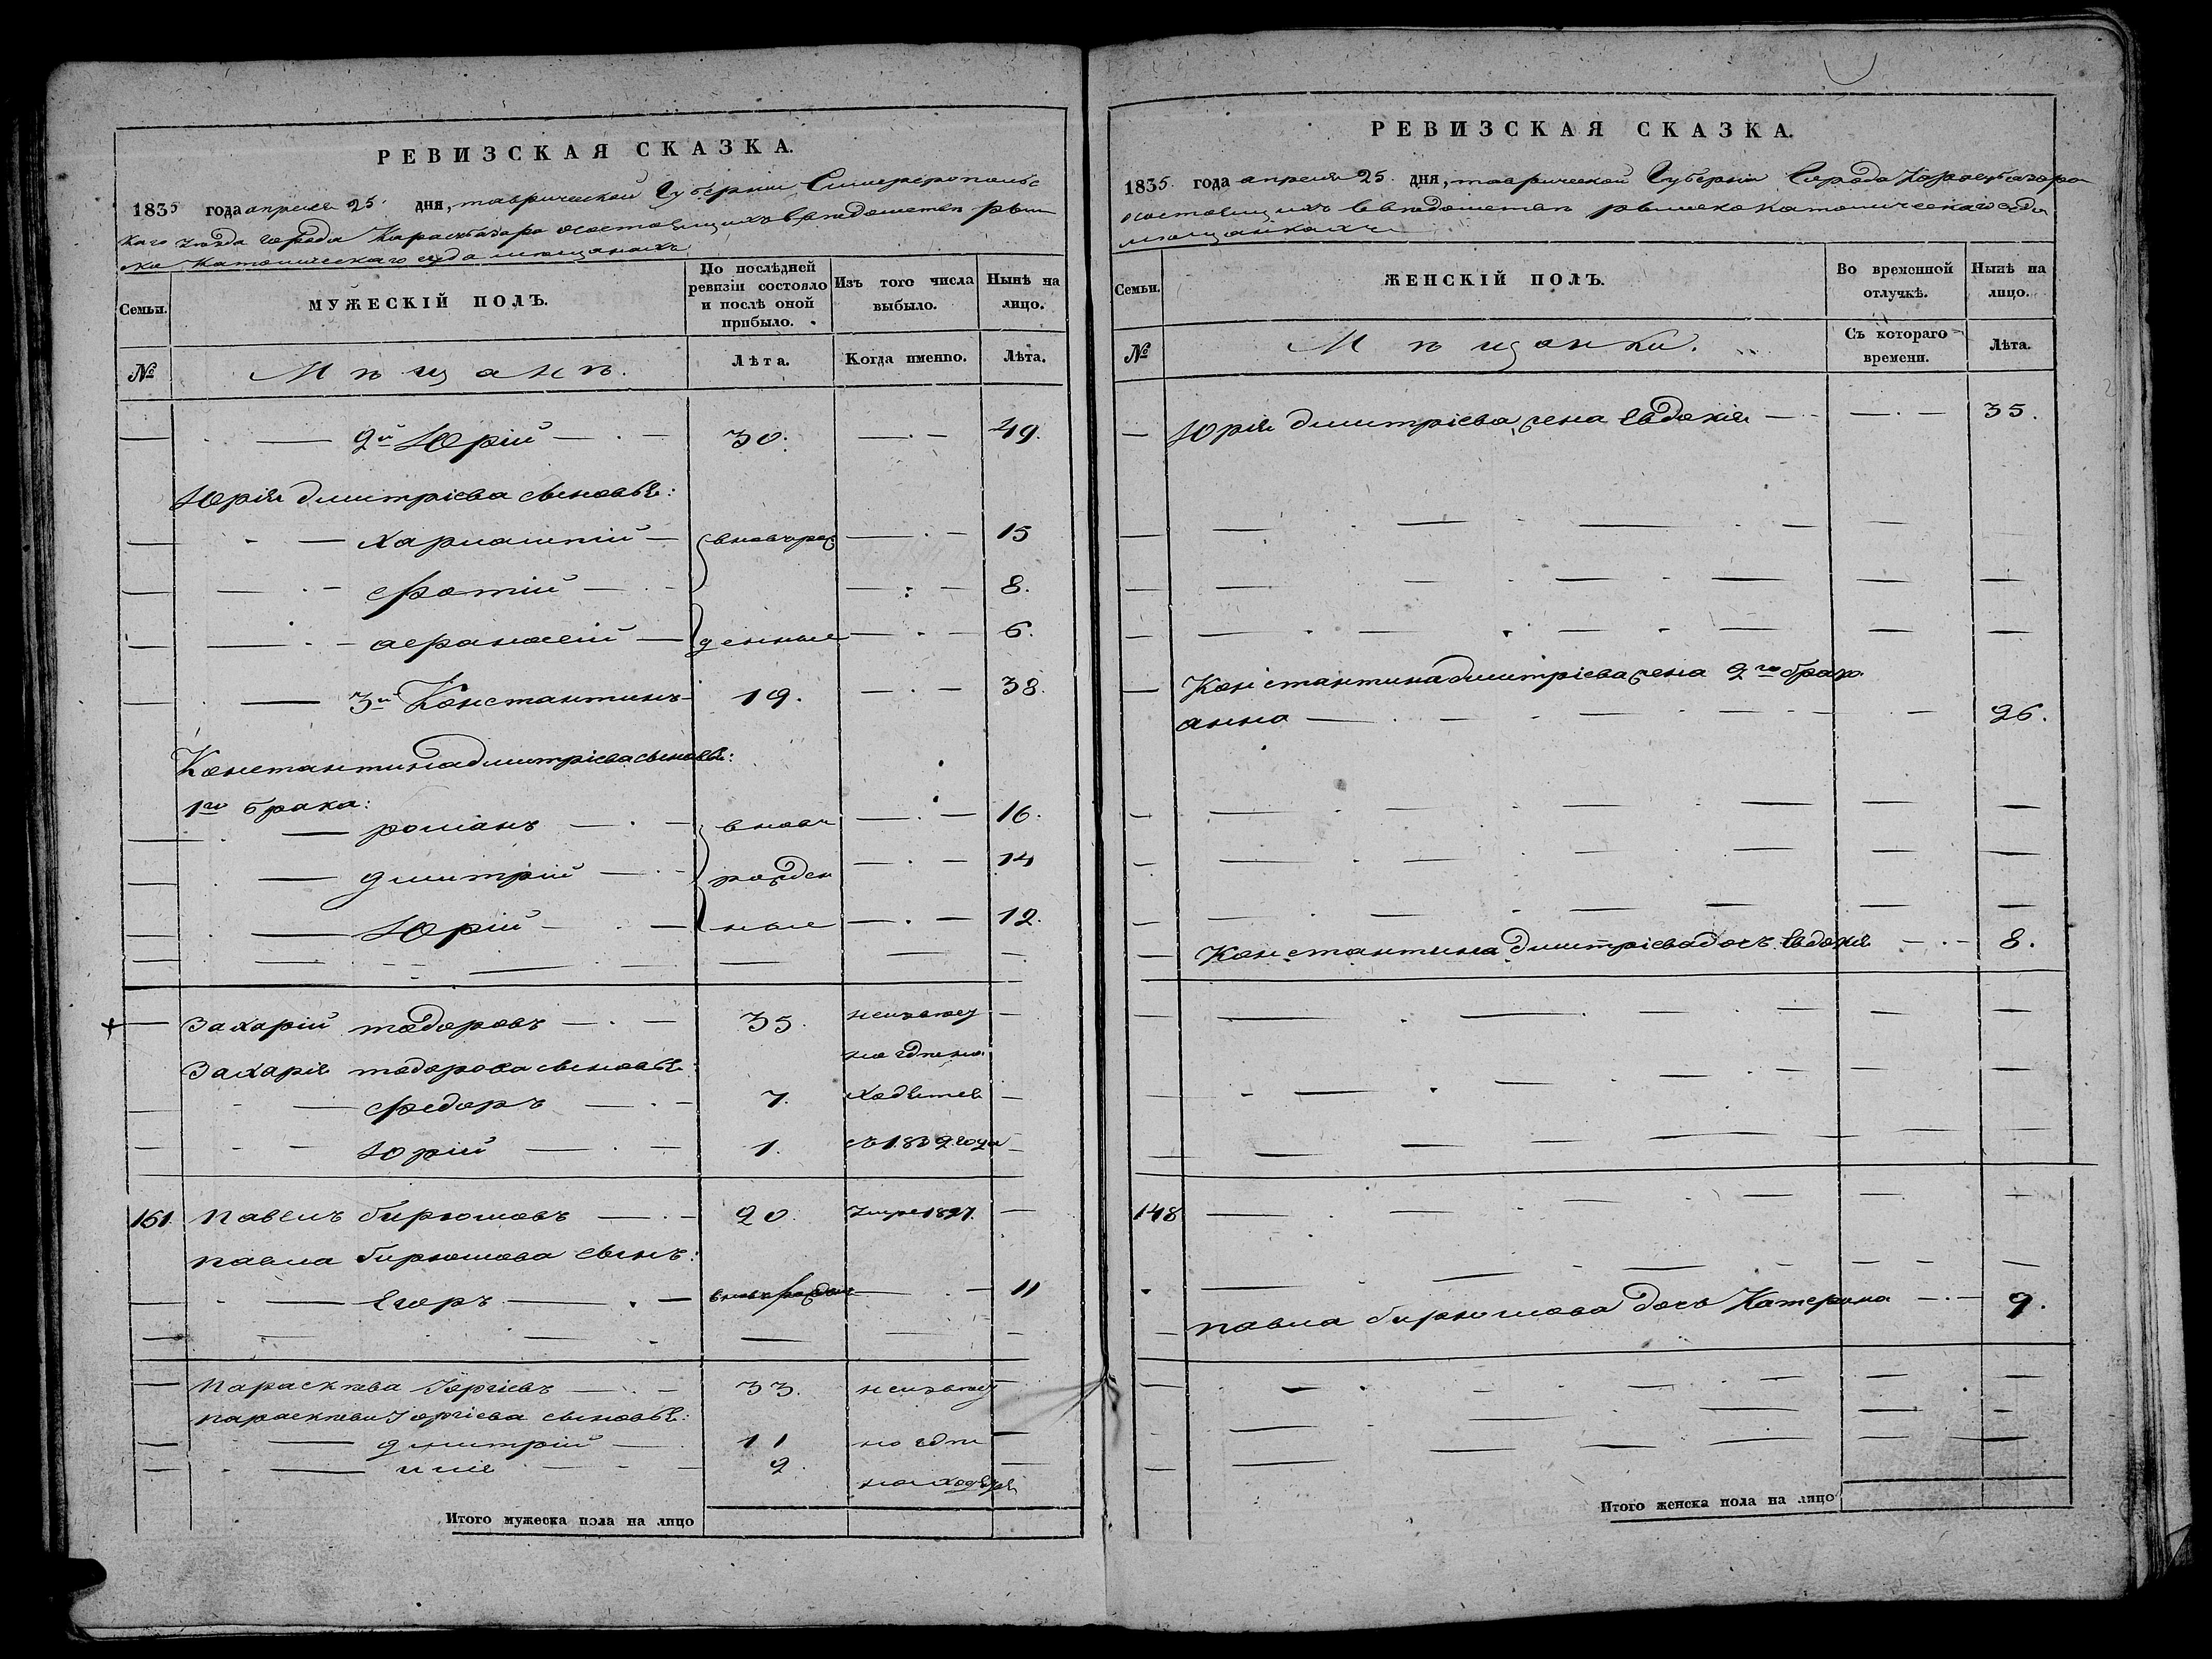 РЕВИЗСКАЯ СКАЗКА.
1835 года апреля 25 дня, таврической Губернии Симферопольс
каго уѣзда города Карасубазара состоящихъ вѣдомствѣ рим
ско Католическаго суда мещанахъ
Семьи.
МУЖЕСКІЙ ПОЛЪ.
По послѣдней ревизіи состояло и послѣ оной прибыло.
Изъ того числа выбыло.
Нынѣ на лицо.
№
Мѣщанъ.
Лѣта.
Когда именно.
Лѣта.
2й Юрій 30. 49.
Юрія дмитріева сыновья:
Харлампій вновь рож 15
Фотій 8.
афанасій денные 6.
3й Константинъ 19. 38.
Константина дмитріева сыновья:
1го брака:
романъ вновь 16.
дмитрій рожден 14
Юрій ные 12.
Захарій тодоровъ 35. неизвес
Захарія тодорова сыновья: но гдѣ на
Федоръ 7. ходятся
Юрій 1. съ 1832 года
151. Павелъ бирюмовъ 20. Умре 1827.
павла бирюмова сынъ:
Егоръ вновь рожден 11
Параскева Юргіевъ 33. неизвес
параскевы Юргіева сыновья:
дмитрій 11 но гдѣ
илія 2. находятся
Итого мужеска пола на лицо
РЕВИЗСКАЯ СКАЗКА.
1835. года апреля 25. дня, таврической Губерніи Города Карасубазара
состоящихъ вѣдомствѣ римскокатолическаго суда
мещанкахъ
Семьи.
ЖЕНСКІЙ ПОЛЪ.
Во временной отлучкѣ.
Нынѣ на лицо.
№
Мѣщанки.
Съ котораго времени.
Лѣта.
Юрія дмитріева жена Евдокія 35.
Константина дмитріева жена 2го брака
анна 26.
Константина дмитріева дочь Евдокія 8.
148
павла бирюмова дочь Катерина 9.
Итого женска пола на лицо